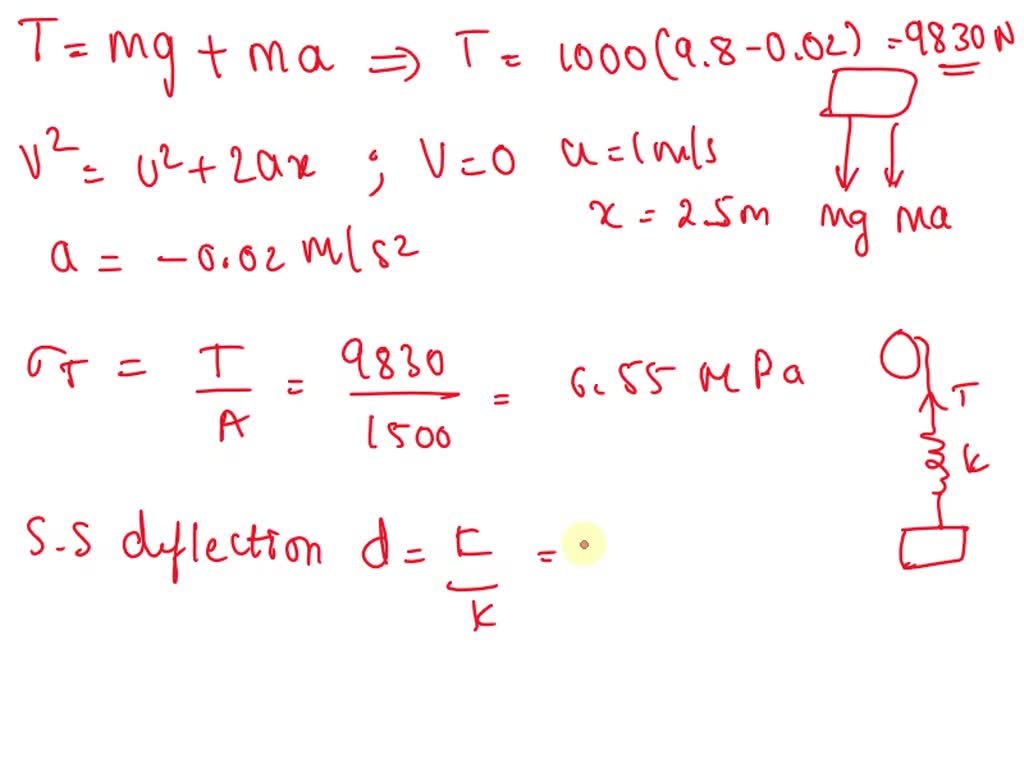 T = mg + ma ⇒ T = 1000(9.8-0.02) = 9830 N
V² = U² + 2ax ; V=0 u = 1m/s
x = 25m mg ma
a = -0.02 m/s2
σT = T/A = 9830/1500 = 6.55 MPa
T
K
S.S deflection d = T/K =